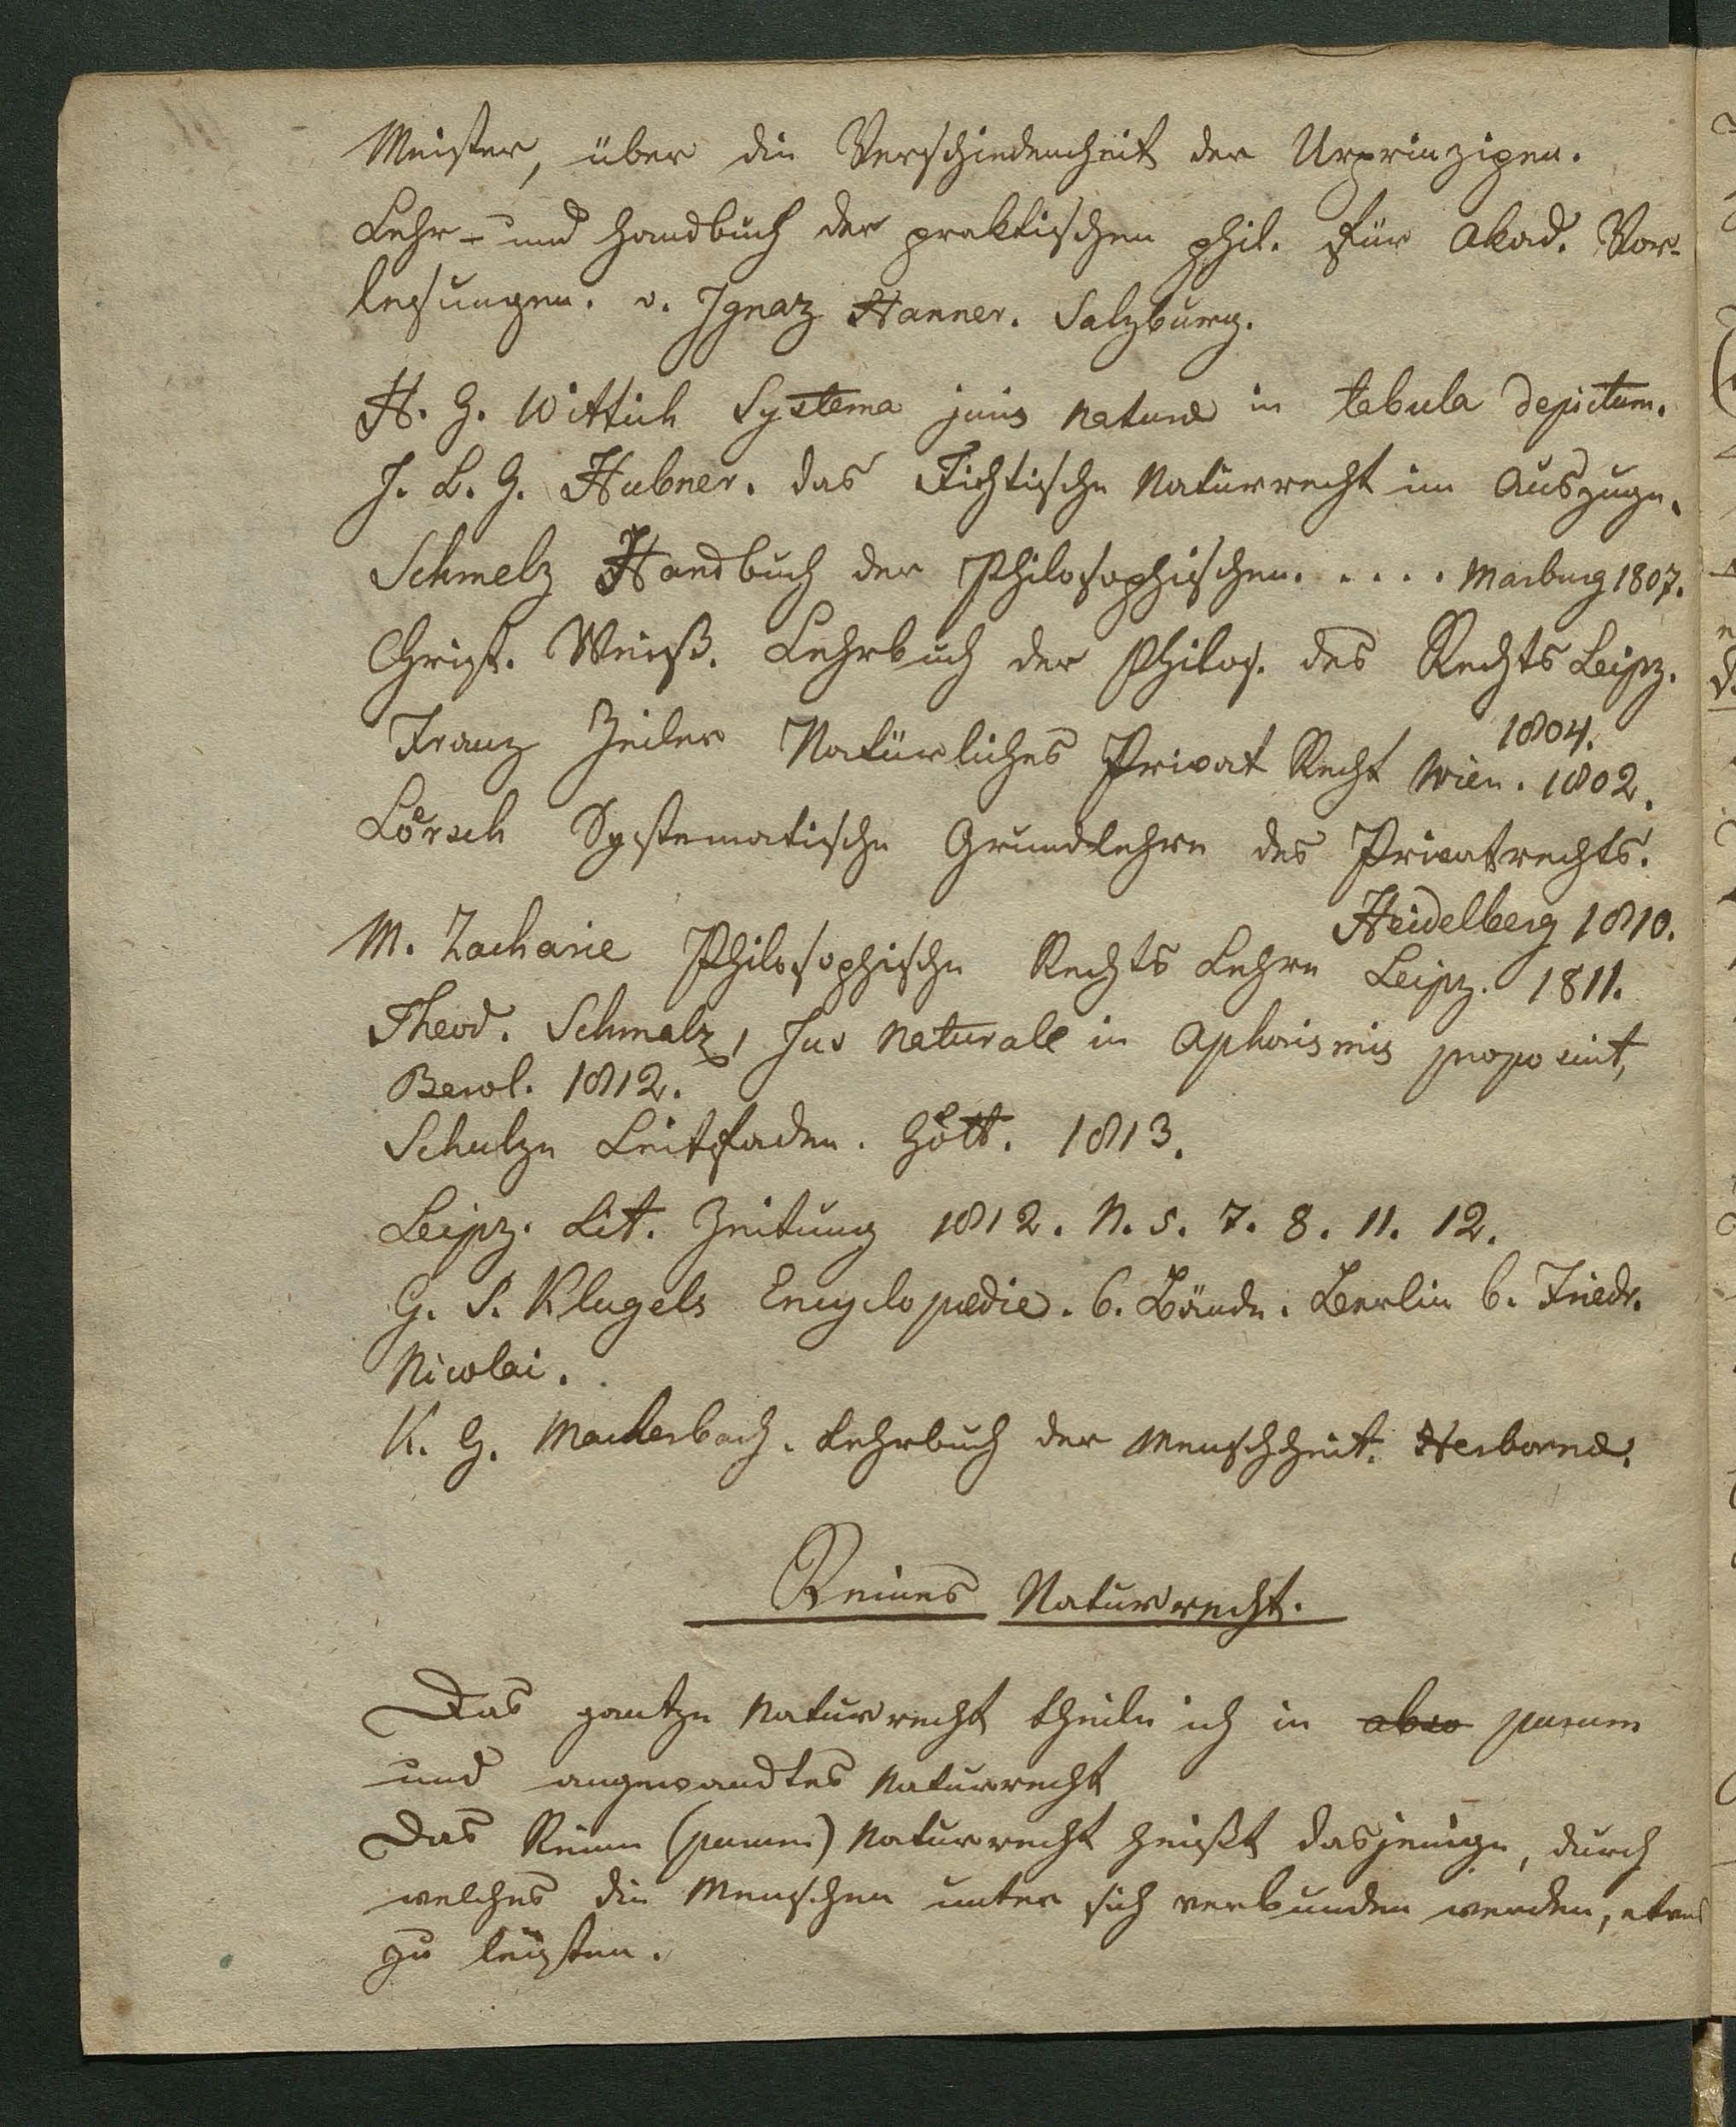 Meister, über die Verschiedenheit der Urprinzipen.
Lehr- und Handbuch der praktischen phil. für Akad. Vor-
lesungen. v. Ignaz Hanner. Salzburg.
H. G. Wittich Systema juis naturæ in tebula depictum.
J. L. G. Hubner. das Fichtische Naturrecht im Auszuge.
Schmelz Handbuch der Philosophischen. . . . . Marburg 1807.
Christ. Weiß. Lehrbuch der Philos. des Rechts Leipz.
1804.
Franz Zeiler Natürliches Privat Recht Wien. 1802.
Lörsch Systematische Grundlehre des Privatrechts.
Heidelberg 1810.
M. Zacharie Philosophische Rechts Lehre Leipz. 1811.
Theod. Schmalz, Jus Naturale in Aphorismis proposuit,
Berol. 1812.
Schulze Leitfaden. Gött. 1813.
Leipz. Lit. Zeitung 1812. N. 5. 7. 8. 11. 12.
G. S. Klugels Encyclopædie. 6. Bände. Berlin b. Friedr.
Nicolai.
K. G. Mackerbach. Lehrbuch der Menschheit. Herbornæ.
Reines Naturrecht.
Das gantze Naturrecht theile ich in abso purum
und angewandtes Naturrecht
Das Reine (purum) Naturrecht heißt dasjenige, durch
welches die Menschen unter sich verbunden werden, etwas
zu leisten.